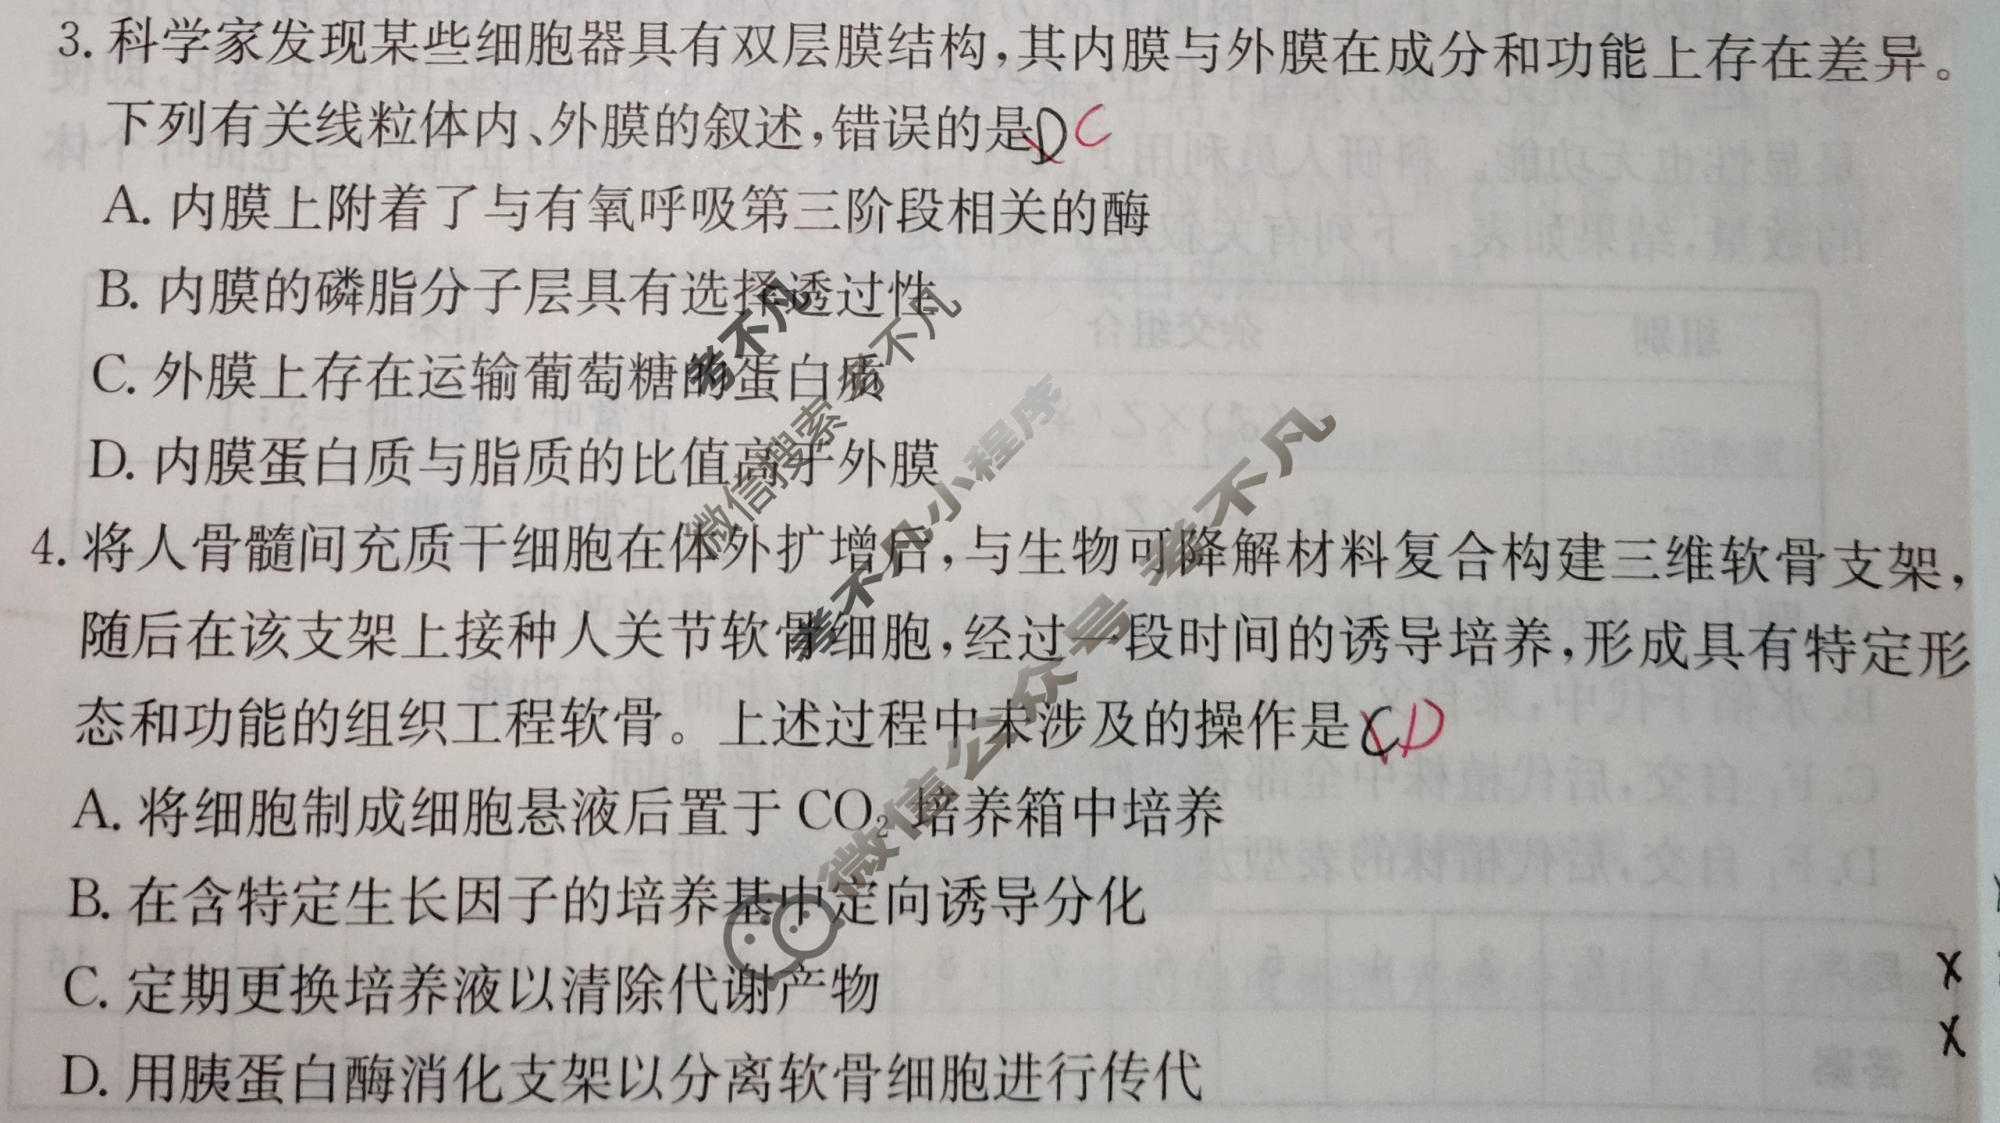 3. 科学家发现某些细胞器具有双层膜结构,其内膜与外膜在成分和功能上存在差异。
下列有关线粒体内、外膜的叙述,错误的是D C
A. 内膜上附着了与有氧呼吸第三阶段相关的酶
B. 内膜的磷脂分子层具有选择透过性
C. 外膜上存在运输葡萄糖的蛋白质
D. 内膜蛋白质与脂质的比值高于外膜
4. 将人骨髓间充质干细胞在体外扩增后,与生物可降解材料复合构建三维软骨支架,
随后在该支架上接种人关节软骨细胞,经过一段时间的诱导培养,形成具有特定形
态和功能的组织工程软骨。上述过程中未涉及的操作是C D
A. 将细胞制成细胞悬液后置于 CO₂ 培养箱中培养
B. 在含特定生长因子的培养基中定向诱导分化
C. 定期更换培养液以清除代谢产物
D. 用胰蛋白酶消化支架以分离软骨细胞进行传代
考不凡
微信搜索 考不凡
考不凡小程序
微信公众号 考不凡